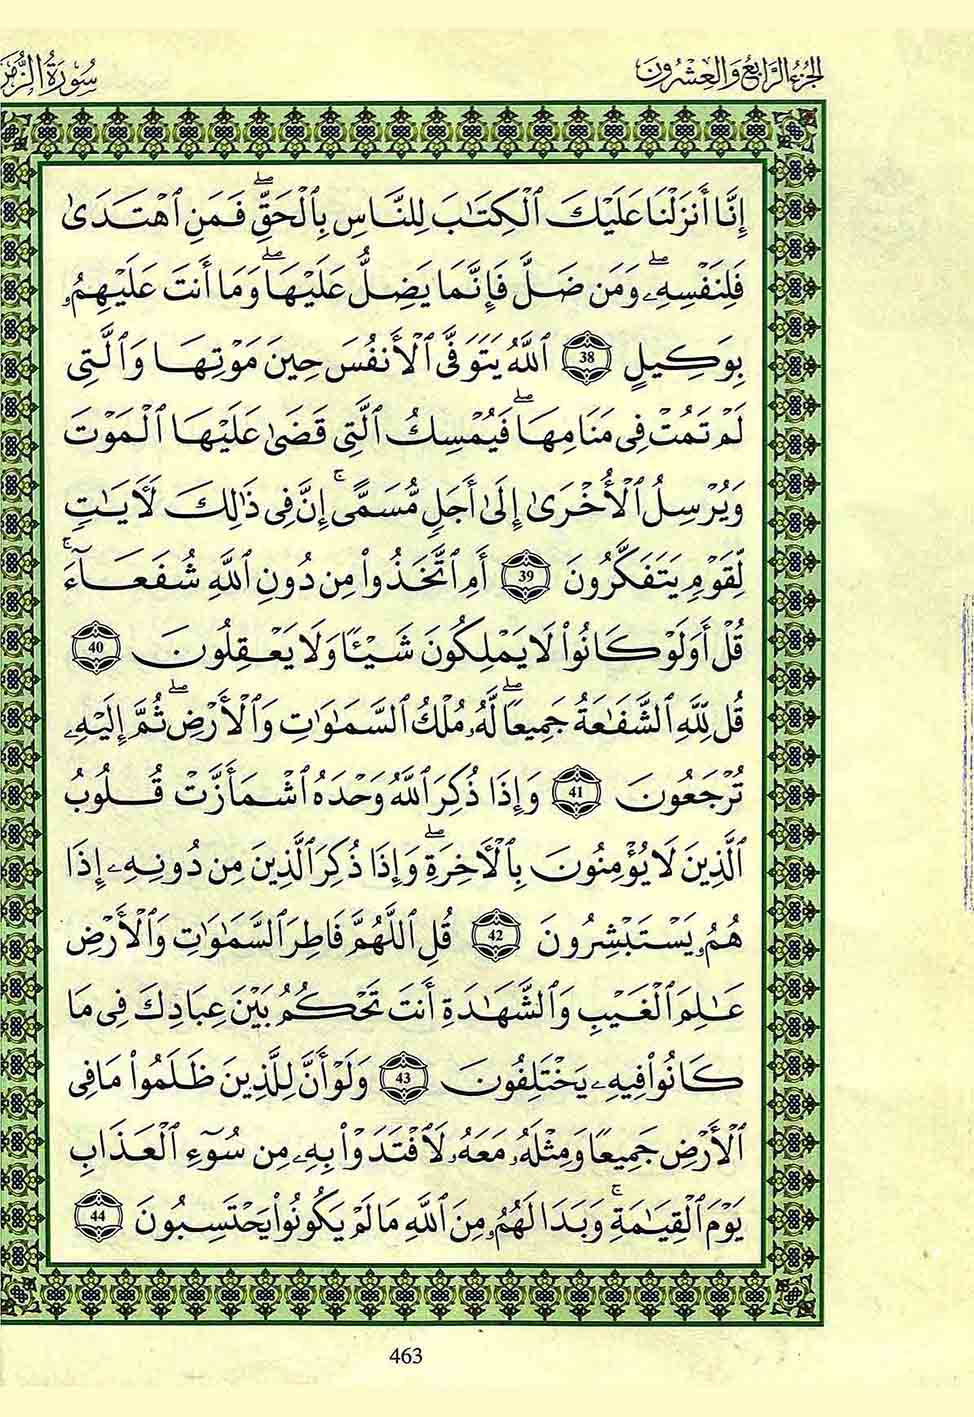 الجزء الرابع والعشرون
سورة الزمر
إِنَّا أَنزَلْنَا عَلَيْكَ ٱلْكِتَٰبَ لِلنَّاسِ بِٱلْحَقِّۖ فَمَنِ ٱهْتَدَىٰ
فَلِنَفْسِهِۦۖ وَمَن ضَلَّ فَإِنَّمَا يَضِلُّ عَلَيْهَاۖ وَمَا أَنتَ عَلَيْهِمُۥ
بِوَكِيلٍ 38 ٱللَّهُ يَتَوَفَّى ٱلْأَنفُسَ حِينَ مَوْتِهَا وَٱلَّتِى
لَمْ تَمُتْ فِى مَنَامِهَاۖ فَيُمْسِكُ ٱلَّتِى قَضَىٰ عَلَيْهَا ٱلْمَوْتَ
وَيُرْسِلُ ٱلْأُخْرَىٰ إِلَىٰ أَجَلٍ مُّسَمًّىۚ إِنَّ فِى ذَٰلِكَ لَأَيَٰتٍ
لِّقَوْمٍ يَتَفَكَّرُونَ 39 أَمِ ٱتَّخَذُواْ مِن دُونِ ٱللَّهِ شُفَعَآءَۚ
قُلْ أَوَلَوْ كَانُواْ لَا يَمْلِكُونَ شَيْـًٔا وَلَا يَعْقِلُونَ 40
قُل لِّلَّهِ ٱلشَّفَٰعَةُ جَمِيعًاۖ لَّهُۥ مُلْكُ ٱلسَّمَٰوَٰتِ وَٱلْأَرْضِۖ ثُمَّ إِلَيْهِۦ
تُرْجَعُونَ 41 وَإِذَا ذُكِرَ ٱللَّهُ وَحْدَهُ ٱشْمَأَزَّتْ قُلُوبُ
ٱلَّذِينَ لَا يُؤْمِنُونَ بِٱلْأَخِرَةِۖ وَإِذَا ذُكِرَ ٱلَّذِينَ مِن دُونِهِۦ إِذَا
هُمُۥ يَسْتَبْشِرُونَ 42 قُلِ ٱللَّهُمَّ فَاطِرَ ٱلسَّمَٰوَٰتِ وَٱلْأَرْضِ
عَٰلِمَ ٱلْغَيْبِ وَٱلشَّهَٰدَةِ أَنتَ تَحْكُمُ بَيْنَ عِبَادِكَ فِى مَا
كَانُواْ فِيهِۦ يَخْتَلِفُونَ 43 وَلَوْ أَنَّ لِلَّذِينَ ظَلَمُواْ مَا فِى
ٱلْأَرْضِ جَمِيعًا وَمِثْلَهُۥ مَعَهُۥ لَٱفْتَدَوْاْ بِهِۦ مِن سُوٓءِ ٱلْعَذَابِ
يَوْمَ ٱلْقِيَٰمَةِۚ وَبَدَا لَهُمُۥ مِنَ ٱللَّهِ مَا لَمْ يَكُونُواْ يَحْتَسِبُونَ 44
463